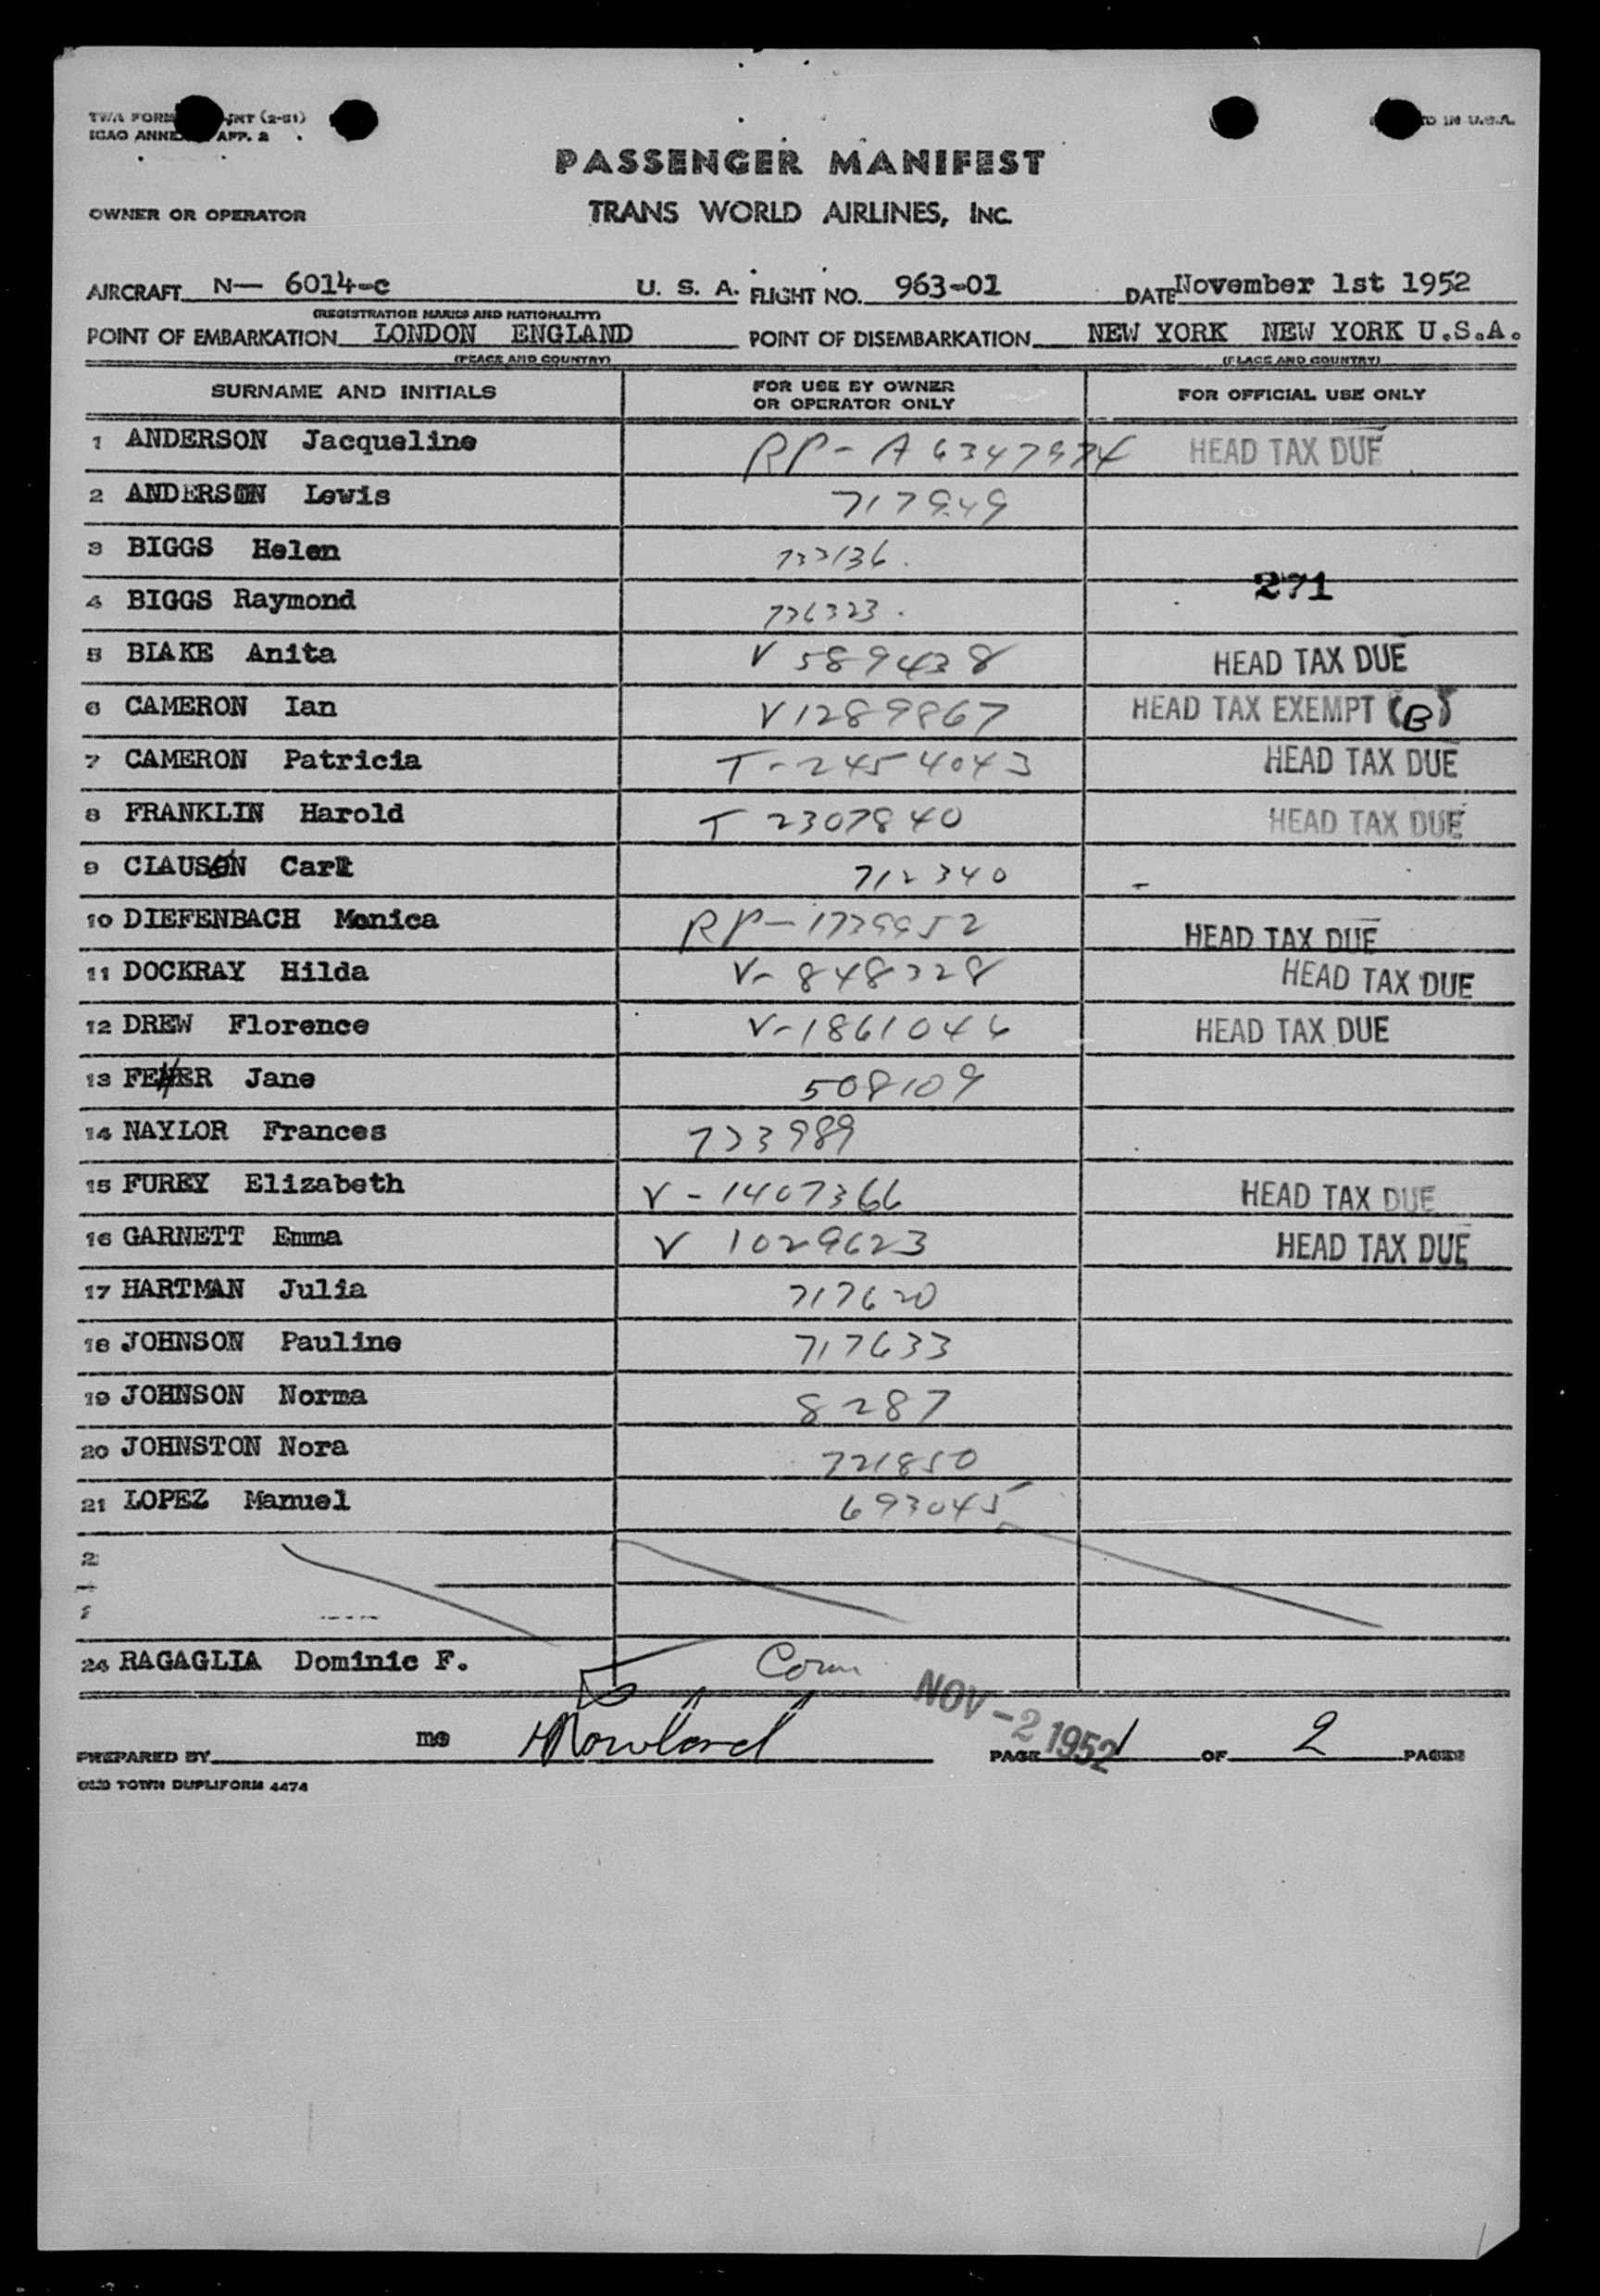 TWA FORM INT (2-51)
ICAO ANNEX APP. 2
IN U.S.A.
PASSENGER MANIFEST
OWNER OR OPERATOR TRANS WORLD AIRLINES, INC.
AIRCRAFT N— 6014-c U. S. A. FLIGHT NO. 963-01 DATE November 1st 1952
(REGISTRATION MARKS AND NATIONALITY)
POINT OF EMBARKATION LONDON ENGLAND POINT OF DISEMBARKATION NEW YORK NEW YORK U.S.A.
(PLACE AND COUNTRY) (PLACE AND COUNTRY)
SURNAME AND INITIALS FOR USE BY OWNER OR OPERATOR ONLY FOR OFFICIAL USE ONLY
1 ANDERSON Jacqueline RP-A6347974 HEAD TAX DUE
2 ANDERSON Lewis 717949
3 BIGGS Helen 733136
271
4 BIGGS Raymond 736323
5 BLAKE Anita V 589438 HEAD TAX DUE
6 CAMERON Ian V1289867 HEAD TAX EXEMPT (B)
7 CAMERON Patricia T-2454043 HEAD TAX DUE
8 FRANKLIN Harold T 2307840 HEAD TAX DUE
9 CLAUSEN Carl 712340
10 DIEFENBACH Monica RP-1739952 HEAD TAX DUE
11 DOCKRAY Hilda V-848328 HEAD TAX DUE
12 DREW Florence V-1861046 HEAD TAX DUE
13 Jane 508109
14 NAYLOR Frances 733989
15 FUREY Elizabeth V-1407366 HEAD TAX DUE
16 GARNETT Emma V 1029623 HEAD TAX DUE
17 HARTMAN Julia 717620
18 JOHNSON Pauline 717633
19 JOHNSON Norma 8287
20 JOHNSTON Nora 721850
21 LOPEZ Manuel 693045
2
24 RAGAGLIA Dominic F.
NOV -2 1952
PREPARED BY mo HRowland PAGE 1 OF 2 PAGES
OLD TOWN DUPLIFORM 4474